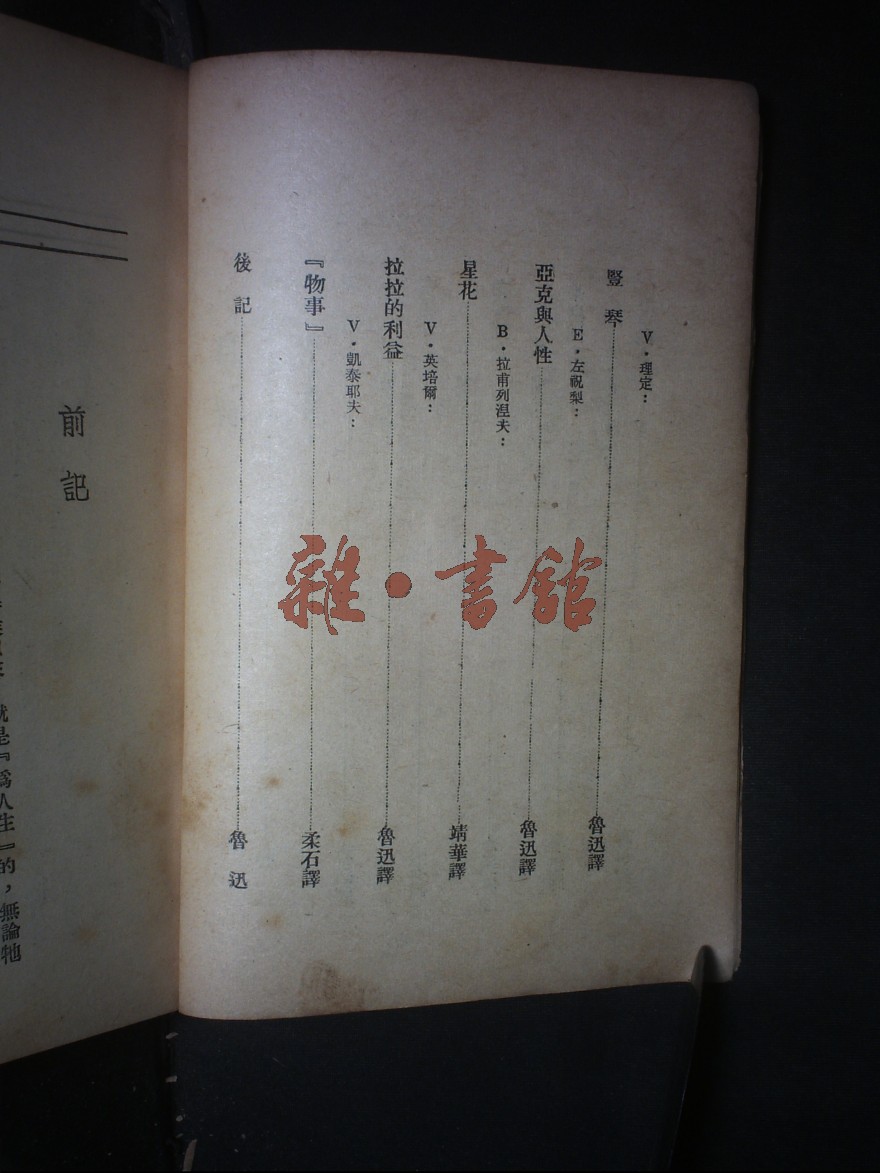 V・理定：
豎琴……魯迅譯
E・左祝梨：
亞克與人性……魯迅譯
B・拉甫列涅夫：
星花……靖華譯
V・英培爾：
拉拉的利益……魯迅譯
V・凱泰耶夫：
『物事』……柔石譯
後記……魯迅
前記
就是『爲人生』的，無論牠
雜・書館